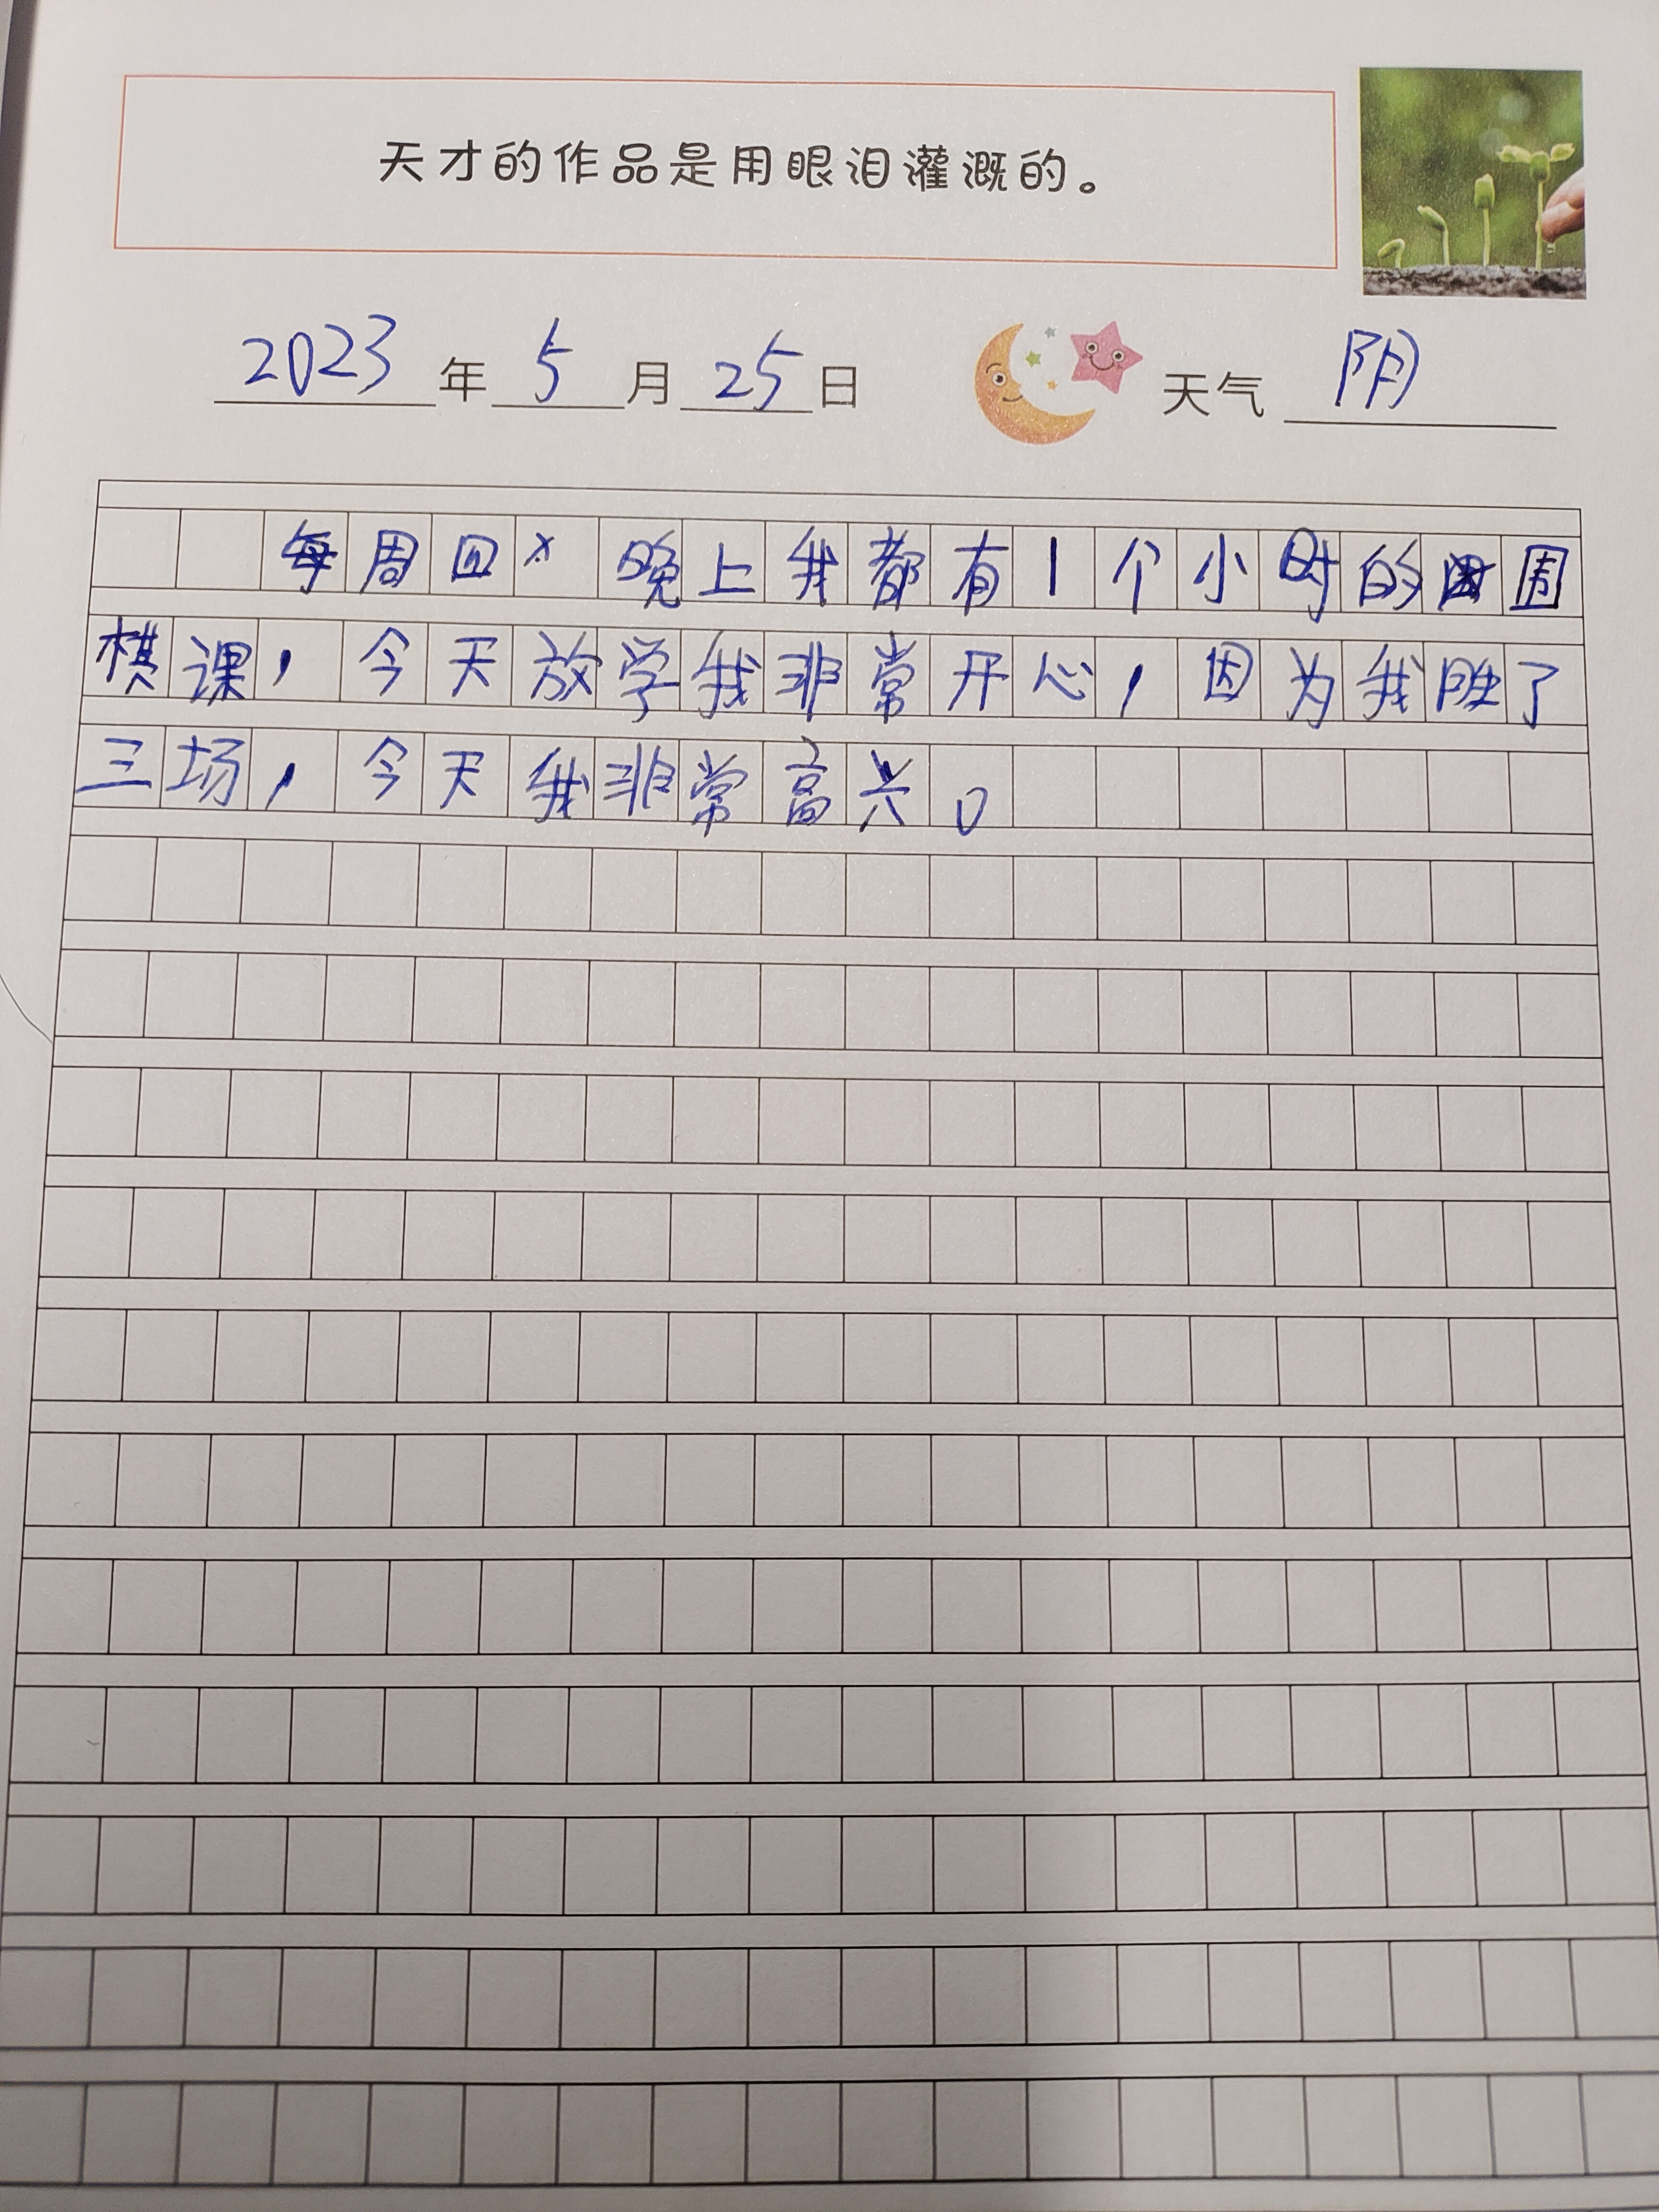 天才的作品是用眼泪灌溉的。
2023年5月25日 天气 阴
每周四晚上我都有1个小时的围
棋课，今天放学我非常开心，因为我胜了
三场，今天我非常高兴。